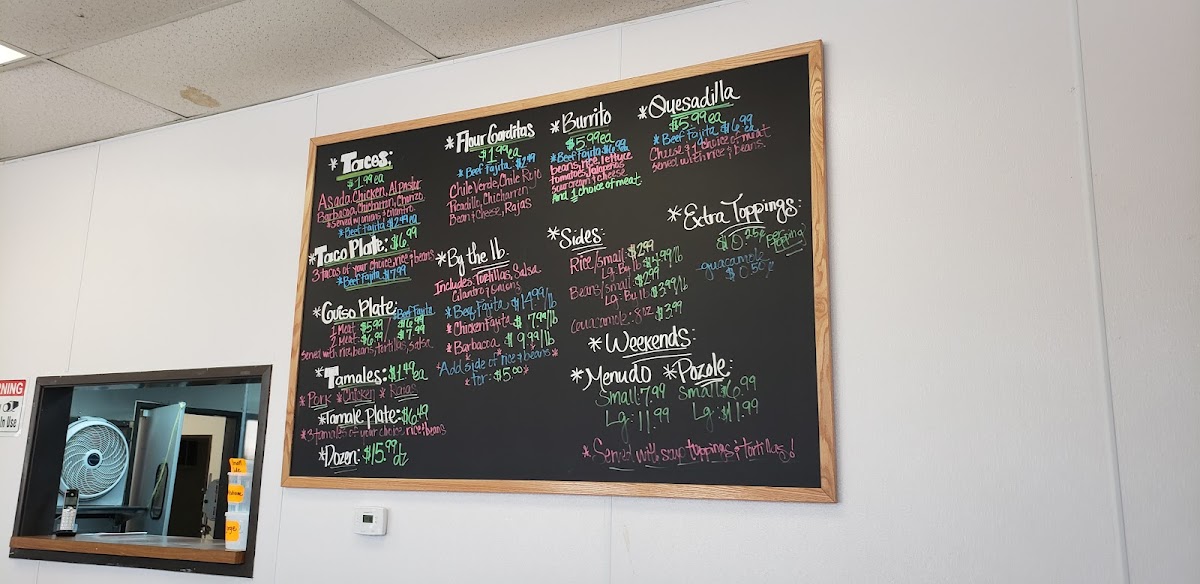 *Tacos:
$1.99 ea
Asada, Chicken, Al Pastor
Barbacoa, Chicharron, Chorizo
*Served w/onions & cilantro.
*Beef Fajita $2.49 ea
*Taco Plate: $6.99
3 tacos of your choice, rice & beans
*Beef Fajita $7.99
*Guiso Plate: *Beef Fajita
1 Meat $5.99 / $6.99
2 Meat $6.99 / $7.99
Served with rice, beans, tortillas, salsa
*Tamales: $1.49 ea
*Pork *Chicken *Rajas
*Tamale Plate: $6.49
*3 tamales of your choice rice & beans
*Dozen: $15.99 dz
*Flour Gorditas
$1.99 ea
*Beef Fajita $2.49
Chile Verde, Chile Rojo
Picadillo, Chicharron
Bean & Cheese, Rajas
*By the lb.
Includes: Tortillas, Salsa
Cilantro & Onions
*Beef Fajita $14.99/lb
*Chicken Fajita $7.99/lb
*Barbacoa $9.99/lb
*Add side of rice & beans*
*for: $5.00*
*Burrito
$5.99 ea
*Beef Fajita $6.99 ea
beans, rice, lettuce
tomatoes, jalapeños
sour cream & cheese
And 1 choice of meat
*Quesadilla
$5.99 ea
*Beef Fajita $6.99 ea
Cheese & 1 choice of meat
Served with rice & beans.
*Sides:
Rice/small: $2.99
Lg: By lb $4.99/lb
Beans/small: $2.99
Lg: By lb $3.99/lb
Guacamole: 8oz $3.99
*Extra Toppings:
$0.25¢ per topping
guacamole
$0.50¢
*Weekends:
*Menudo *Pozole:
Small: 7.99 Small: $6.99
Lg: 11.99 Lg: $11.99
*Served with soup toppings & tortillas!
WARNING
In Use